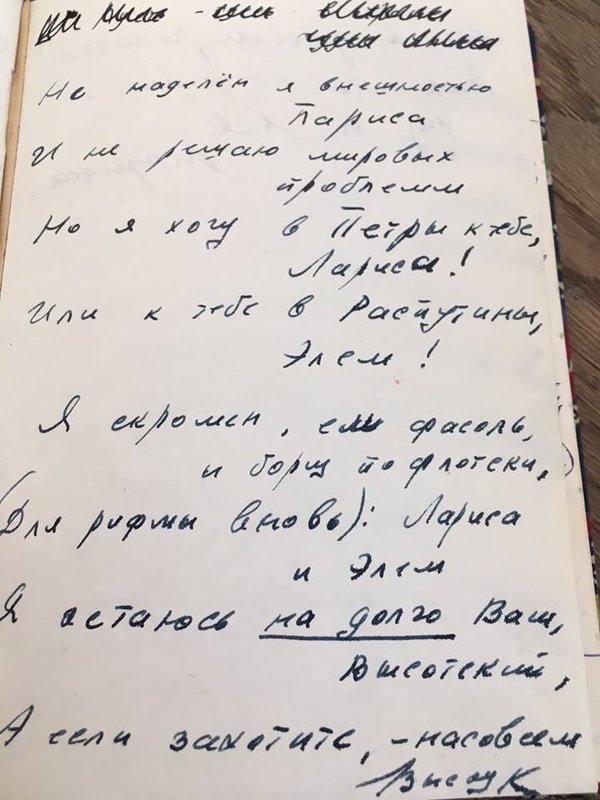 Не наделён я внешностью
Париса
И не решаю мировых
проблемм
Но я хочу в Петры к тебе,
Лариса!
Или к тебе в Распутины,
Элем!
Я скромен, ем фасоль,
и борщ по флотски,
(Для рифмы вновь): Лариса
и Элем
Я остаюсь на долго Ваш,
Высотский,
А если захотите, - насовсем